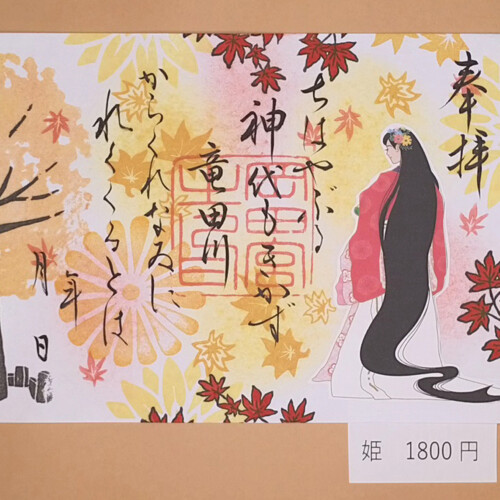 奉拝
ちはやぶる
神代もきかず
竜田川
からくれなゐに
水くくるとは
年
月
日
姫 1800円